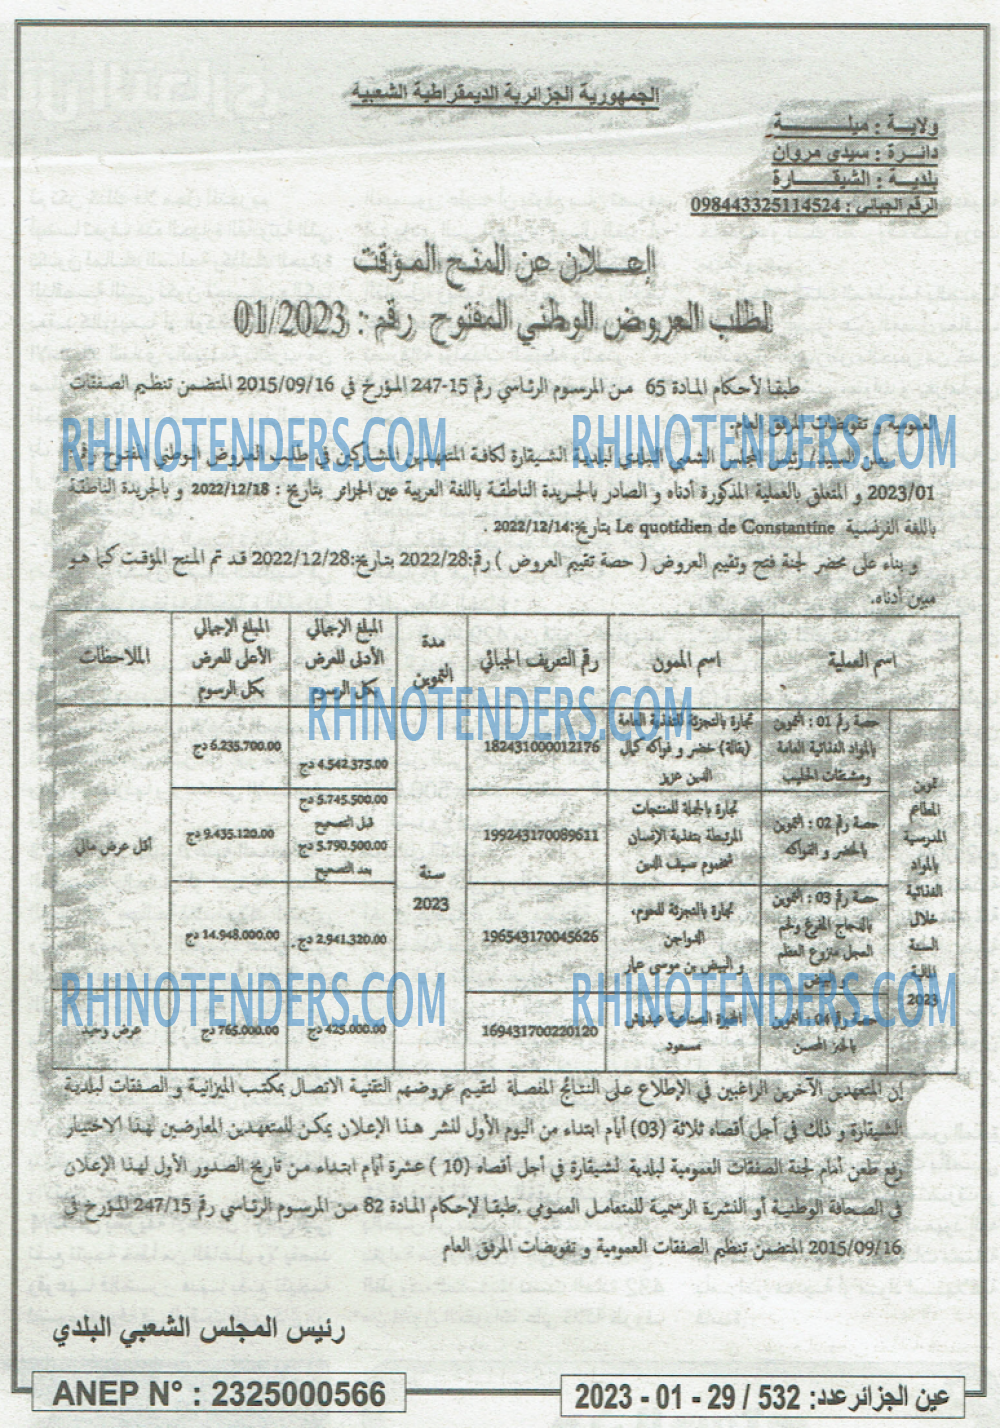 الجمهورية الجزائرية الديمقراطية الشعبية
ولايـــة : ميلـــــــــة
دائـرة : سيدي مروان
بلدية : الشيقـــارة
الرقم الجبائي : 098443325114524
إعـــلان عن المنـح المـؤقت
لطلب العروض الوطني المفتوح رقم : 01/2023
طبقا لأحكام المادة 65 من المرسوم الرئاسي رقم 15-247 المؤرخ في 2015/09/16 المتضمن تنظيم الصفقات
العمومية و تفويضات المرفق العام.
يعلن السيد/ رئيس المجلس الشعبي البلدي لبلدية الشيقارة لكافة المتعهدين المشاركين في طلب العروض الوطني المفتوح رقم:
2023/01 و المتعلق بالعملية المذكورة أدناه و الصادر بالجريدة الناطقة باللغة العربية عين الجزائر بتاريخ : 2022/12/18 و بالجريدة الناطقة
باللغة الفرنسية Le quotidien de Constantine بتاريخ:2022/12/14 .
و بناء على محضر لجنة فتح وتقييم العروض ( حصة تقييم العروض ) رقم:2022/28 بتاريخ:2022/12/28 قد تم المنح المؤقت كما هو
مبين أدناه.
اسم العملية
اسم الممون
رقم التعريف الجبائي
مدة
التموين
المبلغ الإجمالي
الأدنى للعرض
بكل الرسوم
المبلغ الإجمالي
الأعلى للعرض
بكل الرسوم
الملاحظات
تموين
المطاعم
المدرسية
بالمواد
الغذائية
خلال
السنة
المالية
2023
حصة رقم 01 : التموين
بالمواد الغذائية العامة
ومشتقات الحليب
تجارة بالتجزئة للتغذية العامة
(بقالة) خضر و فواكه كمال
الدين عزيز
182431000012176
4.542.375.00 دج
6.235.700.00 دج
حصة رقم 02 : التموين
بالخضر و الفواكه
تجارة بالجملة للمنتجات
المرتبطة بتغذية الإنسان
سيف الدين
199243170089611
5.745.500.00 دج
قبل التصحيح
5.790.500.00 دج
بعد التصحيح
9.435.120.00 دج
حصة رقم 03 : التموين
بالدجاج المفرغ ولحم
العجل منزوع العظم
و البيض
تجارة بالتجزئة للحوم،
الدواجن
و البيض بن موسى عمار
196543170045626
2.941.320.00 دج
14.948.000.00 دج
سنة
2023
أقل عرض مالي
حصة رقم 04 : التموين
بالخبز المحسن
الخبزة الصناعية
مسعود
169431700220120
425.000.00 دج
765.000.00 دج
عرض وحيد
إن المتعهدين الآخرين الراغبين في الإطلاع على النتائج المفصلة لتقييم عروضهم التقنية الاتصال بمكتب الميزانية و الصفقات لبلدية
الشيقارة و ذلك في أجل أقصاه ثلاثة (03) أيام ابتداء من اليوم الأول لنشر هذا الإعلان يمكن للمتعهدين المعارضين لهذا الاختيار
رفع طعن أمام لجنة الصفقات العمومية لبلدية لشيقارة في أجل أقصاه (10 ) عشرة أيام ابتداء من تاريخ الصدور الأول لهذا الإعلان
في الصحافة الوطنية أو النشرة الرسمية للمتعامل العمومي .طبقا لإحكام المادة 82 من المرسوم الرئاسي رقم 247/15 المؤرخ في
2015/09/16 المتضمن تنظيم الصفقات العمومية و تفويضات المرفق العام
رئيس المجلس الشعبي البلدي
ANEP N° : 2325000566
عين الجزائر عدد: 532 / 29 - 01 - 2023
RHINOTENDERS.COM
RHINOTENDERS.COM
RHINOTENDERS.COM
RHINOTENDERS.COM
RHINOTENDERS.COM